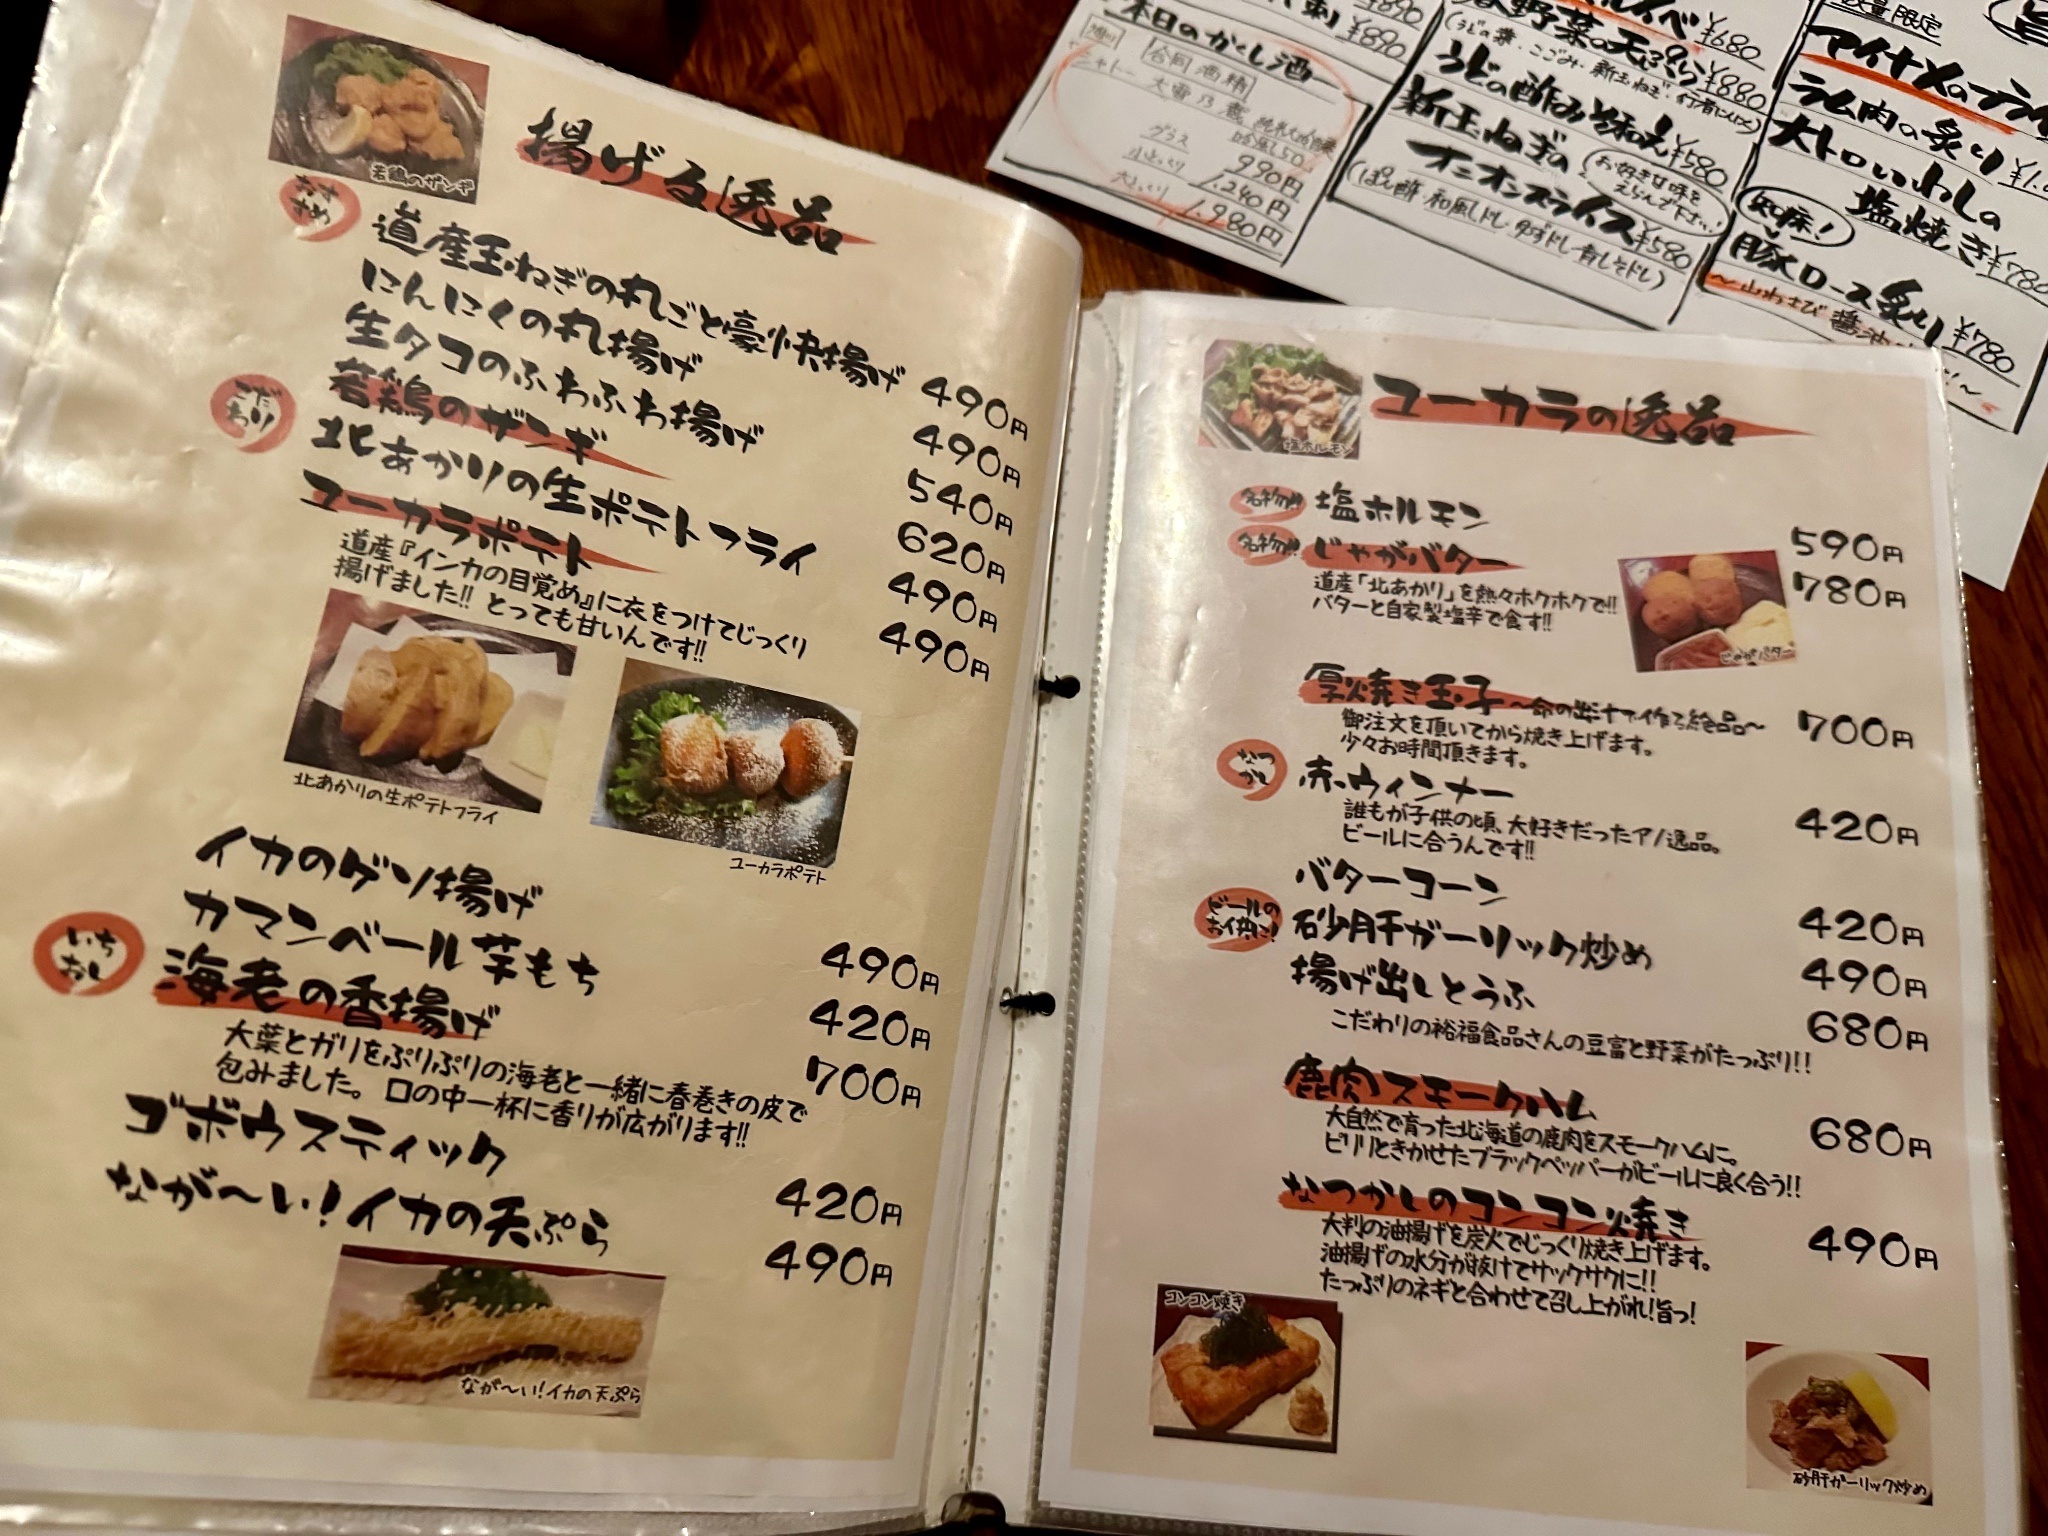 若鶏のザンギ
揚げる逸品
おすすめ
道産玉ねぎの丸ごと豪快揚げ 490円
にんにくの丸揚げ 490円
生タコのふわふわ揚げ 540円
こだわり
若鶏のザンギ 620円
北あかりの生ポテトフライ 490円
ユーカラポテト 490円
道産『インカの目覚め』に衣をつけてじっくり
揚げました!! とっても甘いんです!!
北あかりの生ポテトフライ
ユーカラポテト
イカのゲソ揚げ 490円
カマンベール芋もち 420円
いちおし
海老の香揚げ 700円
大葉とガリをぷりぷりの海老と一緒に春巻きの皮で
包みました。口の中一杯に香りが広がります!!
ゴボウスティック 420円
なが〜い!イカの天ぷら 490円
なが〜い!イカの天ぷら
塩ホルモン
ユーカラの逸品
名物!! 塩ホルモン 590円
名物!! じゃがバター 780円
道産「北あかり」を熱々ホクホクで!!
バターと自家製塩辛で食す!!
じゃがバター
厚焼き玉子 〜命の出汁で作る絶品〜 700円
御注文を頂いてから焼き上げます。
少々お時間頂きます。
なつかし
赤ウィンナー 420円
誰もが子供の頃、大好きだったアノ逸品。
ビールに合うんです!!
バターコーン 420円
ビールのお供に!
砂肝ガーリック炒め 490円
揚げ出しとうふ 680円
こだわりの裕福食品さんの豆富と野菜がたっぷり!!
鹿肉スモークハム 680円
大自然で育った北海道の鹿肉をスモークハムに。
ピリリときかせたブラックペッパーがビールに良く合う!!
なつかしのコンコン焼き 490円
大判の油揚げを炭火でじっくり焼き上げます。
油揚げの水分が抜けてサックサクに!!
たっぷりのネギと合わせて召し上がれ!旨っ!
コンコン焼き
砂肝ガーリック炒め
刺 ¥890
本日のかくし酒
旭川
合同酒精
大雪乃蔵
グラス 990円
小とっくり 1.240円
大とっくり 1.980円
¥680
野菜の天ぷら ¥880
(うどの芽・こごみ・新玉ねぎ・行者にんにく)
うどの酢みそ和え ¥580
新玉ねぎの
オニオンスライス ¥580
お好き甘味を
えらんで下さい!
(ぽん酢・和風ドレ・ゆずドレ・青じそドレ)
数量限定
アイナメのフライ
ラム肉の炙り
大トロいわしの
塩焼き ¥780
知床!
豚ロース炙り ¥780
〜山わさび醤油